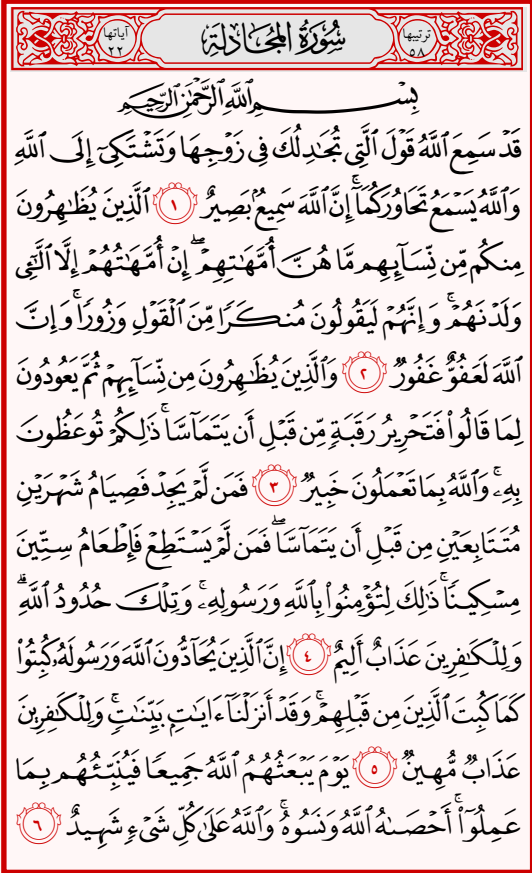 ترتيبها ٥٨ سُورَةُ المُجَادلَةِ آياتها ٢٢
بِسْمِ ٱللَّهِ ٱلرَّحْمَٰنِ ٱلرَّحِيمِ
قَدْ سَمِعَ ٱللَّهُ قَوْلَ ٱلَّتِي تُجَٰدِلُكَ فِي زَوْجِهَا وَتَشْتَكِيٓ إِلَى ٱللَّهِ
وَٱللَّهُ يَسْمَعُ تَحَاوُرَكُمَآۚ إِنَّ ٱللَّهَ سَمِيعُۢ بَصِيرٌ ١ ٱلَّذِينَ يُظَٰهِرُونَ
مِنكُم مِّن نِّسَآئِهِم مَّا هُنَّ أُمَّهَٰتِهِمْۖ إِنْ أُمَّهَٰتُهُمْ إِلَّا ٱلَّٰٓـِٔي
وَلَدْنَهُمْۚ وَإِنَّهُمْ لَيَقُولُونَ مُنكَرًا مِّنَ ٱلْقَوْلِ وَزُورًاۚ وَإِنَّ
ٱللَّهَ لَعَفُوٌّ غَفُورٌ ٢ وَٱلَّذِينَ يُظَٰهِرُونَ مِن نِّسَآئِهِمْ ثُمَّ يَعُودُونَ
لِمَا قَالُوا۟ فَتَحْرِيرُ رَقَبَةٍ مِّن قَبْلِ أَن يَتَمَآسَّاۚ ذَٰلِكُمْ تُوعَظُونَ
بِهِۦۚ وَٱللَّهُ بِمَا تَعْمَلُونَ خَبِيرٌ ٣ فَمَن لَّمْ يَجِدْ فَصِيَامُ شَهْرَيْنِ
مُتَتَابِعَيْنِ مِن قَبْلِ أَن يَتَمَآسَّاۖ فَمَن لَّمْ يَسْتَطِعْ فَإِطْعَامُ سِتِّينَ
مِسْكِينًاۚ ذَٰلِكَ لِتُؤْمِنُوا۟ بِٱللَّهِ وَرَسُولِهِۦۚ وَتِلْكَ حُدُودُ ٱللَّهِۗ
وَلِلْكَٰفِرِينَ عَذَابٌ أَلِيمٌ ٤ إِنَّ ٱلَّذِينَ يُحَآدُّونَ ٱللَّهَ وَرَسُولَهُۥ كُبِتُوا۟
كَمَا كُبِتَ ٱلَّذِينَ مِن قَبْلِهِمْۚ وَقَدْ أَنزَلْنَآ ءَايَٰتٍۭ بَيِّنَٰتٍۚ وَلِلْكَٰفِرِينَ
عَذَابٌ مُّهِينٌ ٥ يَوْمَ يَبْعَثُهُمُ ٱللَّهُ جَمِيعًا فَيُنَبِّئُهُم بِمَا
عَمِلُوٓا۟ۚ أَحْصَىٰهُ ٱللَّهُ وَنَسُوهُۚ وَٱللَّهُ عَلَىٰ كُلِّ شَيْءٍ شَهِيدٌ ٦